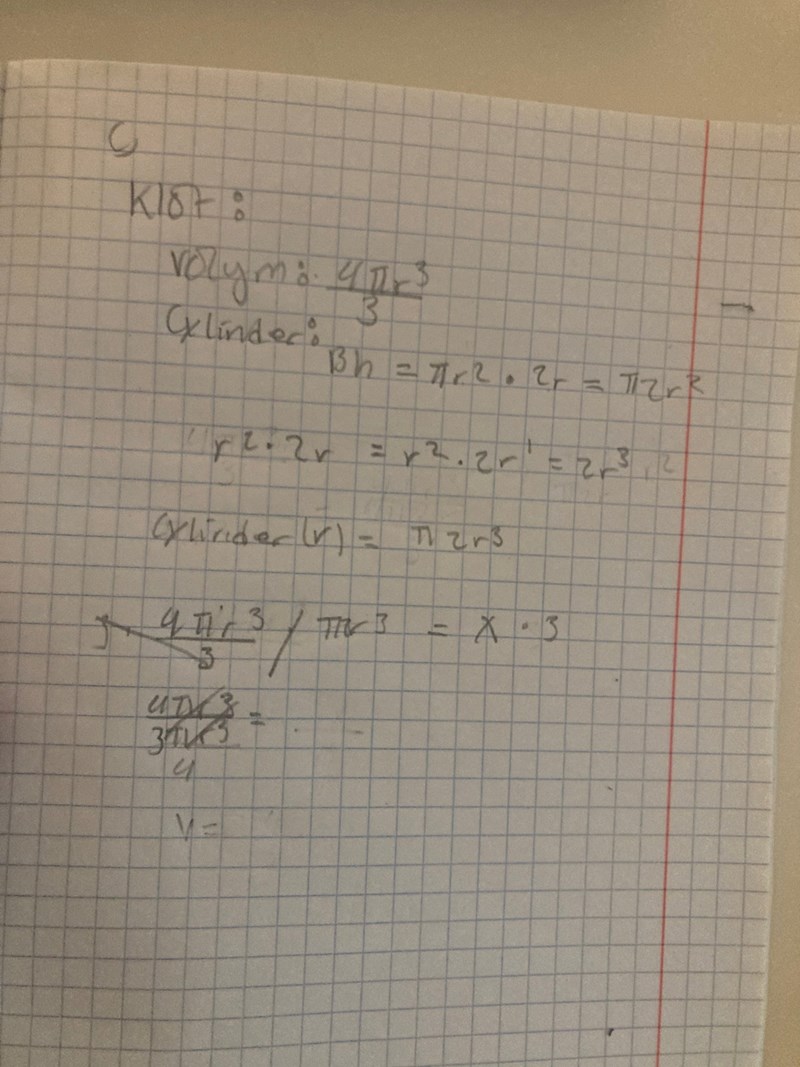 C
Klot:
Volym: 4πr³/3
Cylinder:
Bh = πr² · 2r = π2r²
r² · 2r = r² · 2r¹ = 2r³
Cylinder(r) = π2r³
4πr³/3 / πr³ = x · 3
4πr3/3πr3 =
4
V =